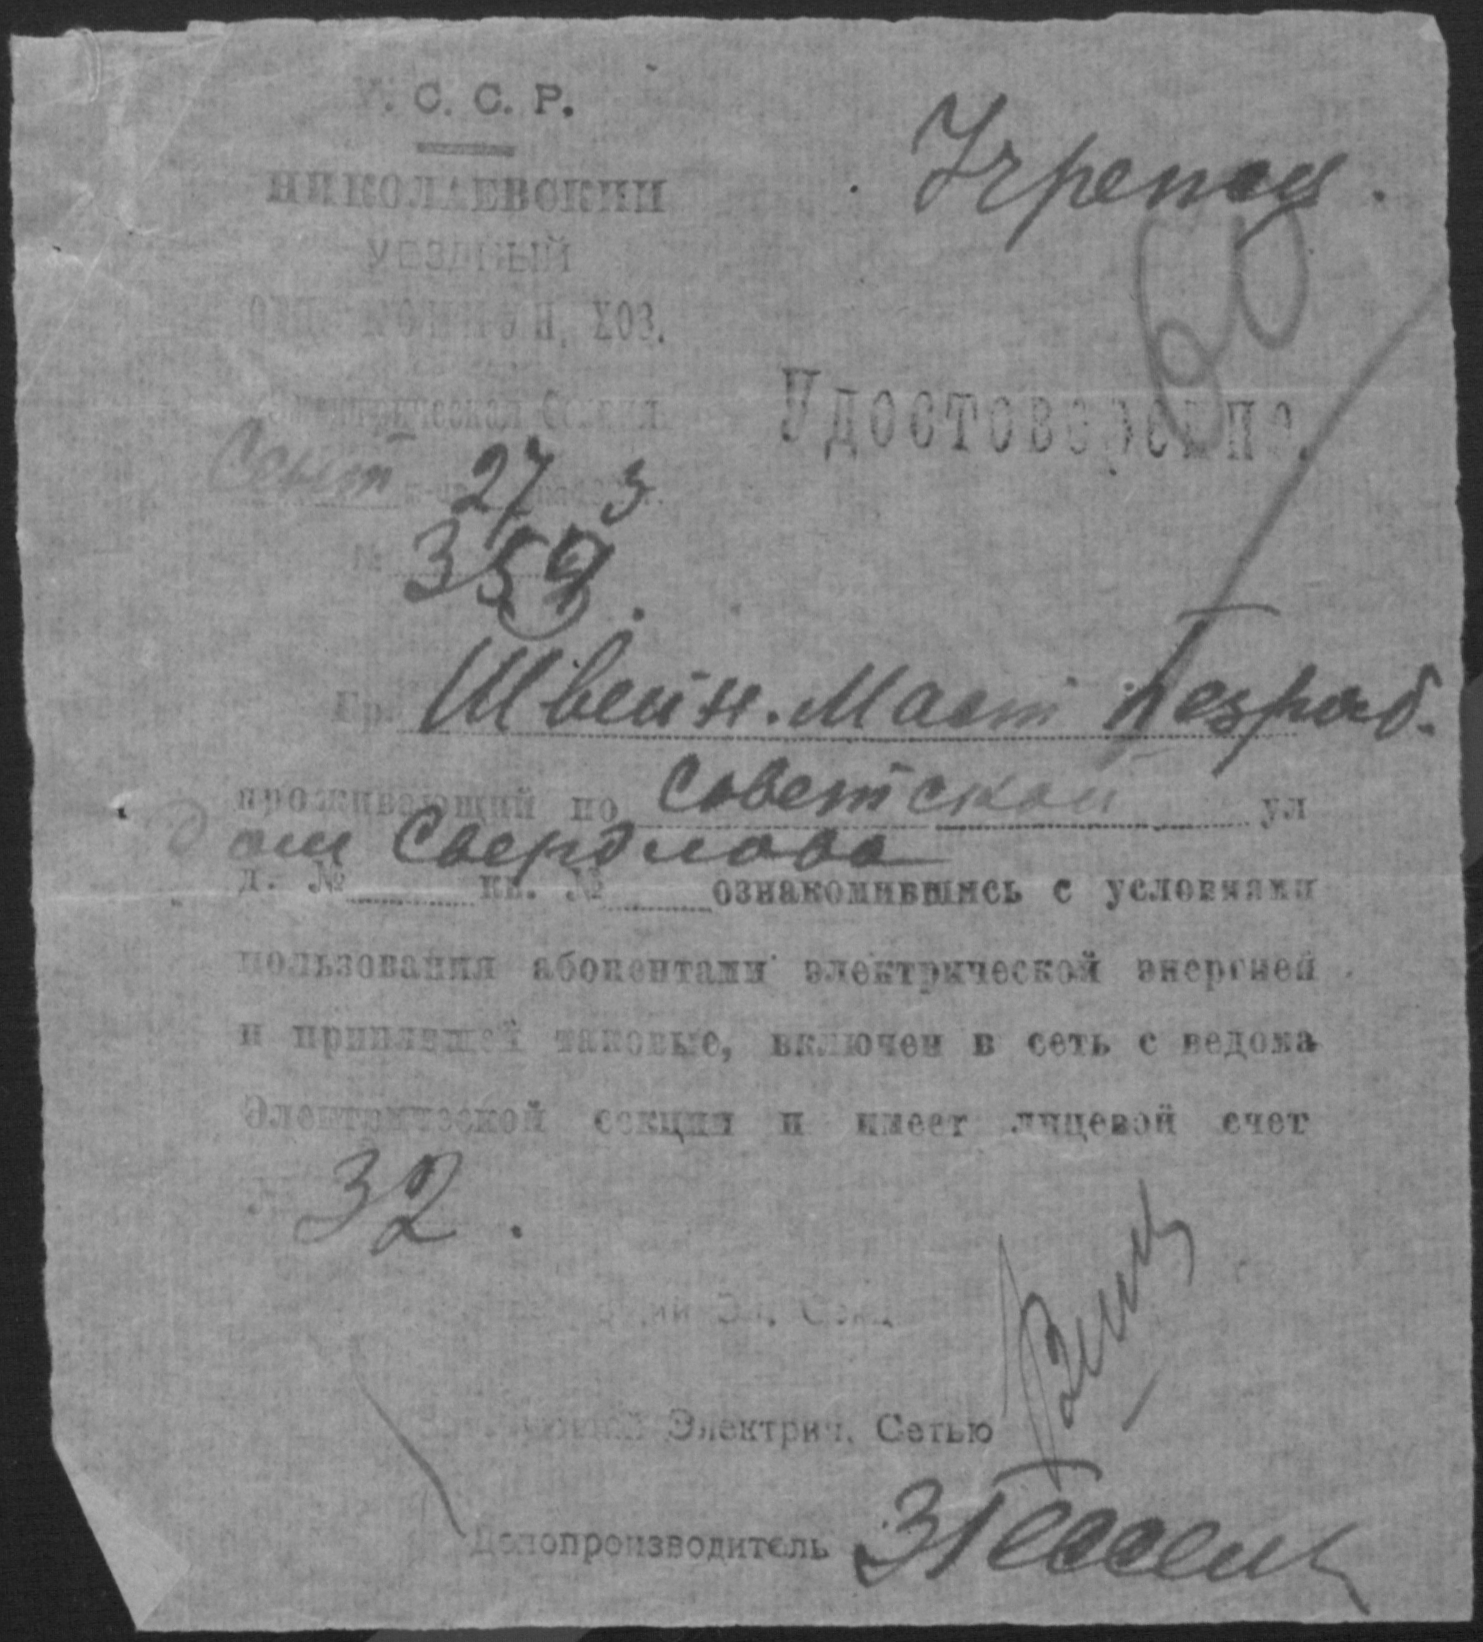 У. С. С. Р.
НИКОЛАЕВСКИЙ
УЕЗДНЫЙ
ОТД. КОММУН. ХОЗ.
Электрическая Секция.
Сент 27 3
№ 359.
60
Удостоверение.
Гр. Швейн. Маст Безраб.
проживающий по Советской ул
дом Свердлова
д. № кв. № ознакомившись с условиями
пользования абонентами электрической энергией
и принявшей таковые, включен в сеть с ведома
Электрической секции и имеет лицевой счет
№ 32.
Эл. Секц
Электрич. Сетью
Делопроизводитель ЗГессен